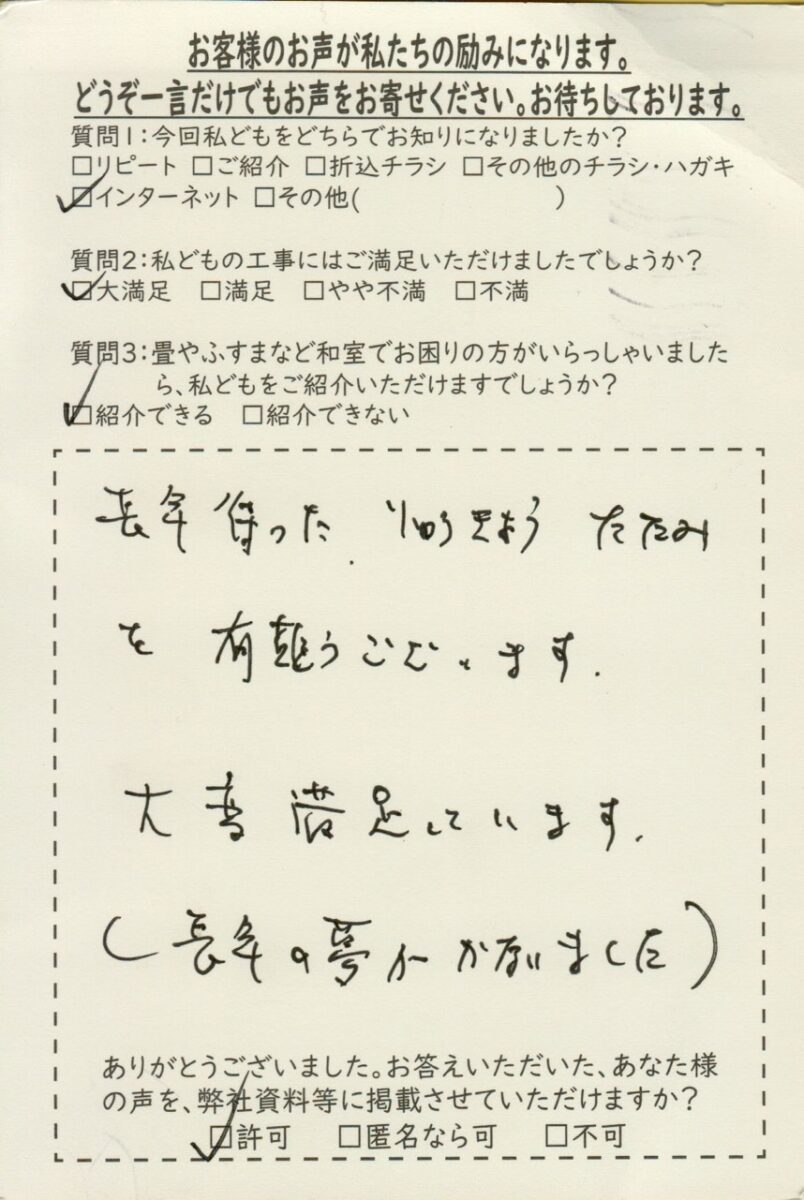 お客様のお声が私たちの励みになります。
どうぞ一言だけでもお声をお寄せください。お待ちしております。
質問1:今回私どもをどちらでお知りになりましたか?
□リピート □ご紹介 □折込チラシ □その他のチラシ・ハガキ
☑インターネット □その他( )
質問2:私どもの工事にはご満足いただけましたでしょうか?
☑大満足 □満足 □やや不満 □不満
質問3:畳やふすまなど和室でお困りの方がいらっしゃいました
ら、私どもをご紹介いただけますでしょうか?
☑紹介できる □紹介できない
長年待った りゅうきゅう たたみ
を 有難うございます.
大変満足しています.
(長年の夢がかないました)
ありがとうございました。お答えいただいた、あなた様
の声を、弊社資料等に掲載させていただけますか?
☑許可 □匿名なら可 □不可